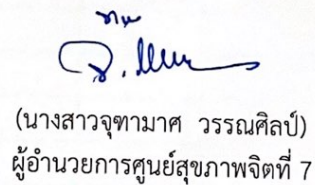 (นางสาวจุฑามาศ วรรณศิลป์)
ผู้อำนวยการศูนย์สุขภาพจิตที่ 7